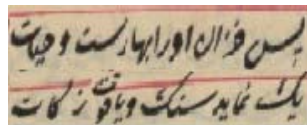 پس خزان او را بهارست و حیات
یک نماید سنگ و یاقوت زکات